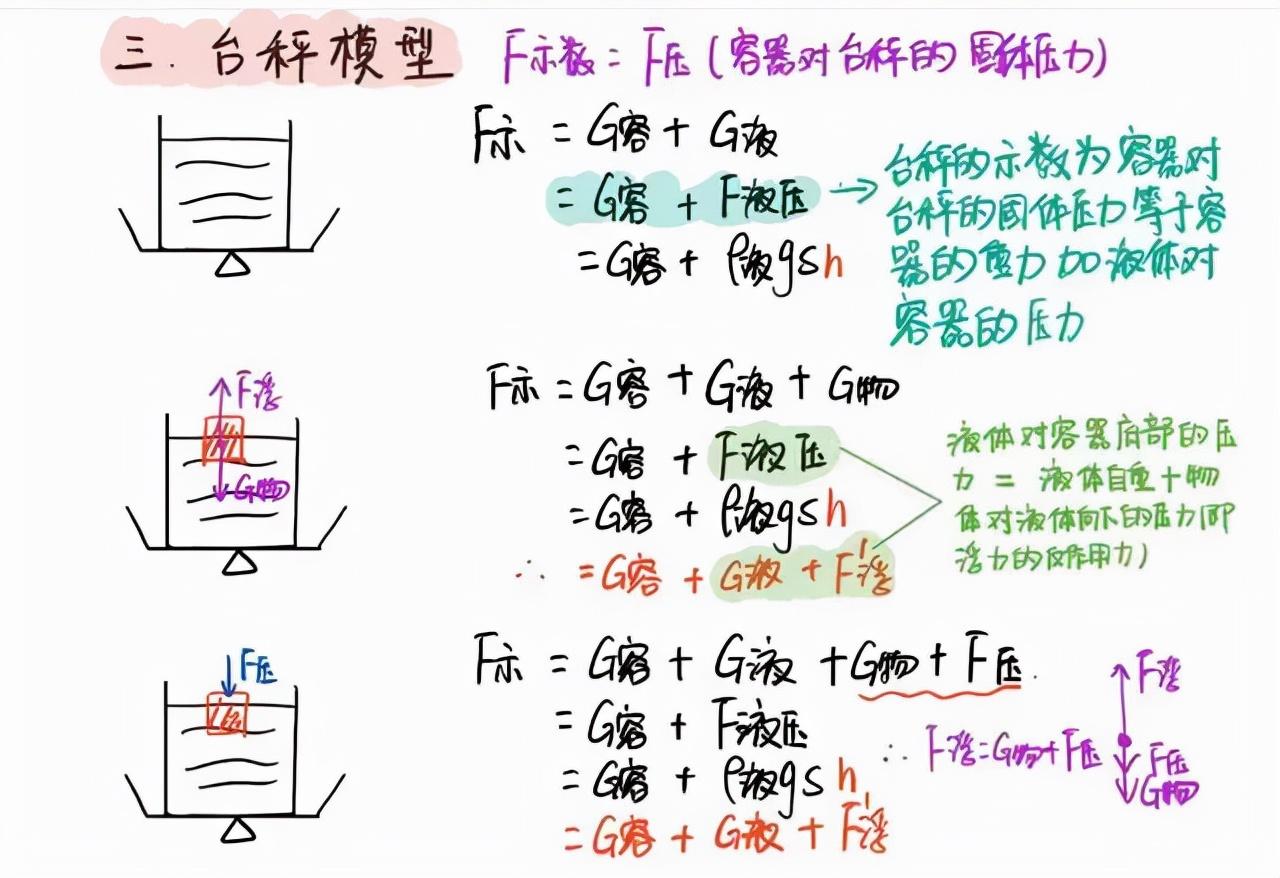 三. 台秤模型 F示数 = F压 (容器对台秤的固体压力)
F示 = G容 + G液
= G容 + F液压 → 台秤的示数为容器对
台秤的固体压力等于容
= G容 + ρ液gsh 器的重力加液体对
容器的压力
F浮
G物
F示 = G容 + G液 + G物
= G容 + F液压
= G容 + ρ液gsh
∴ = G容 + G液 + F'浮
液体对容器底部的压
力 = 液体自重+物
体对液体向下的压力即
浮力的反作用力)
F压
F示 = G容 + G液 + G物 + F压
= G容 + F液压
= G容 + ρ液gsh
= G容 + G液 + F'浮
∴ F浮=G物+F压
F浮
F压
G物